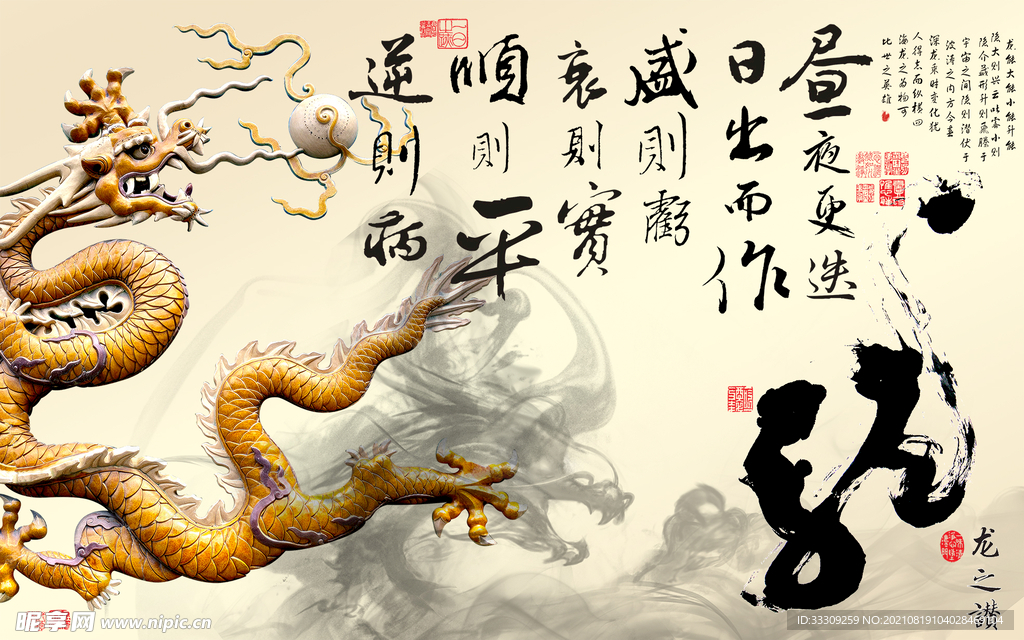 龙能大能小能升能
隐大则兴云吐雾小则
隐介藏形升则飞腾于
宇宙之间隐则潜伏于
波涛之内方今春
深龙乘时变化犹
人得志而纵横四
海龙之为物可
比世之英雄
昼夜更迭
日出而作
盛則虧
衰則實
順則平
逆則病
龙
龙之讃
昵享网 www.nipic.cn
ID:33309259 NO:20210819104028469104